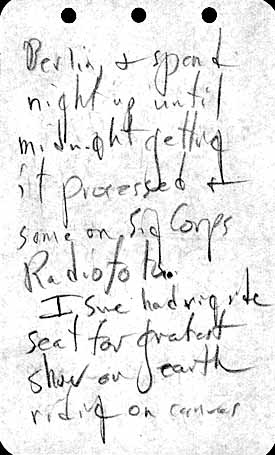 Berlin, & spend
night up until
midnight getting
it processed &
some on Sig Corps
Radiofoto.
I sure had
seat for
show on earth
riding on canvas